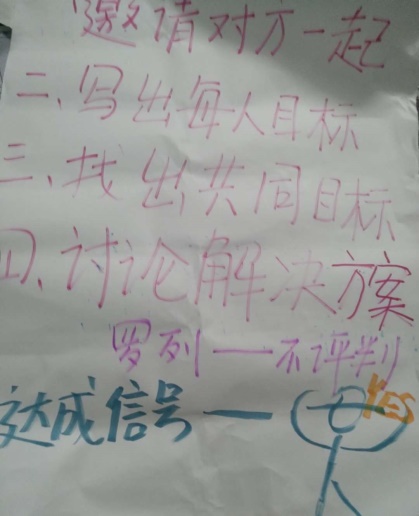 邀请对方一起
二、写出每人目标
三、找出共同目标
四、讨论解决方案
罗列—不评判
达成信号—
YES